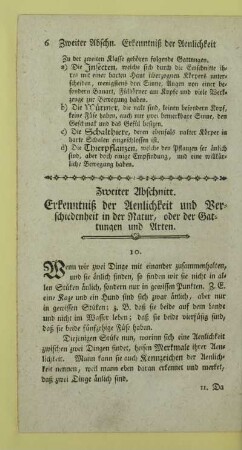 6 Zweiter Abschn. Erkenntniß der Aenlichkeit
Zu der zweiten Klasse gehören folgende Gattungen.
a) Die Insecten, welche sich durch die Einschnitte ih-
res mit einer harten Haut überzogenen Körpers unter-
scheiden, wenigstens den Sinne, Augen von einer be-
sondern Bauart, Fülhörner am Kopfe und viele Werk-
zeuge zur Bewegung haben.
b) Die Würmer, die nakt sind, keinen besondern Kopf,
keine Füse haben, auch nur zwei bemerkbare Sinne, den
Geschmack und das Gefül besizen.
c) Die Schalthiere, deren ebenfals nakter Körper in
harte Schalen eingeschlossen ist.
d) Die Thierpflanzen, welche den Pflanzen ser änlich
sind, aber doch einige Empfindung, und eine willkür-
liche Bewegung haben.
Zweiter Abschnitt.
Erkenntniß der Aenlichkeit und Ver-
schiedenheit in der Natur, oder der Gat-
tungen und Arten.
10.
Wenn wir zwei Dinge mit einander zusammenhalten,
und sie änlich finden, so finden wir sie nicht in al-
len Stüken änlich, sondern nur in gewissen Punkten. Z. E.
eine Kaze und ein Hund sind sich zwar änlich, aber nur
in gewissen Stüken: z. B. daß sie beide auf dem Lande
und nicht im Wasser leben; daß sie beide vierfüsig sind,
daß sie beide fünfzehige Füse haben.
Diejenigen Stüke nun, warinn sich eine Aenlichkeit
zwischen zwei Dingen findet, heisen Merkmale ihrer Aen-
lichkeit. Mann kann sie auch Kennzeichen der Aenlich-
keit nennen, weil mann eben daran erkennet und merket,
daß zwei Dinge änlich sind.
11. Da